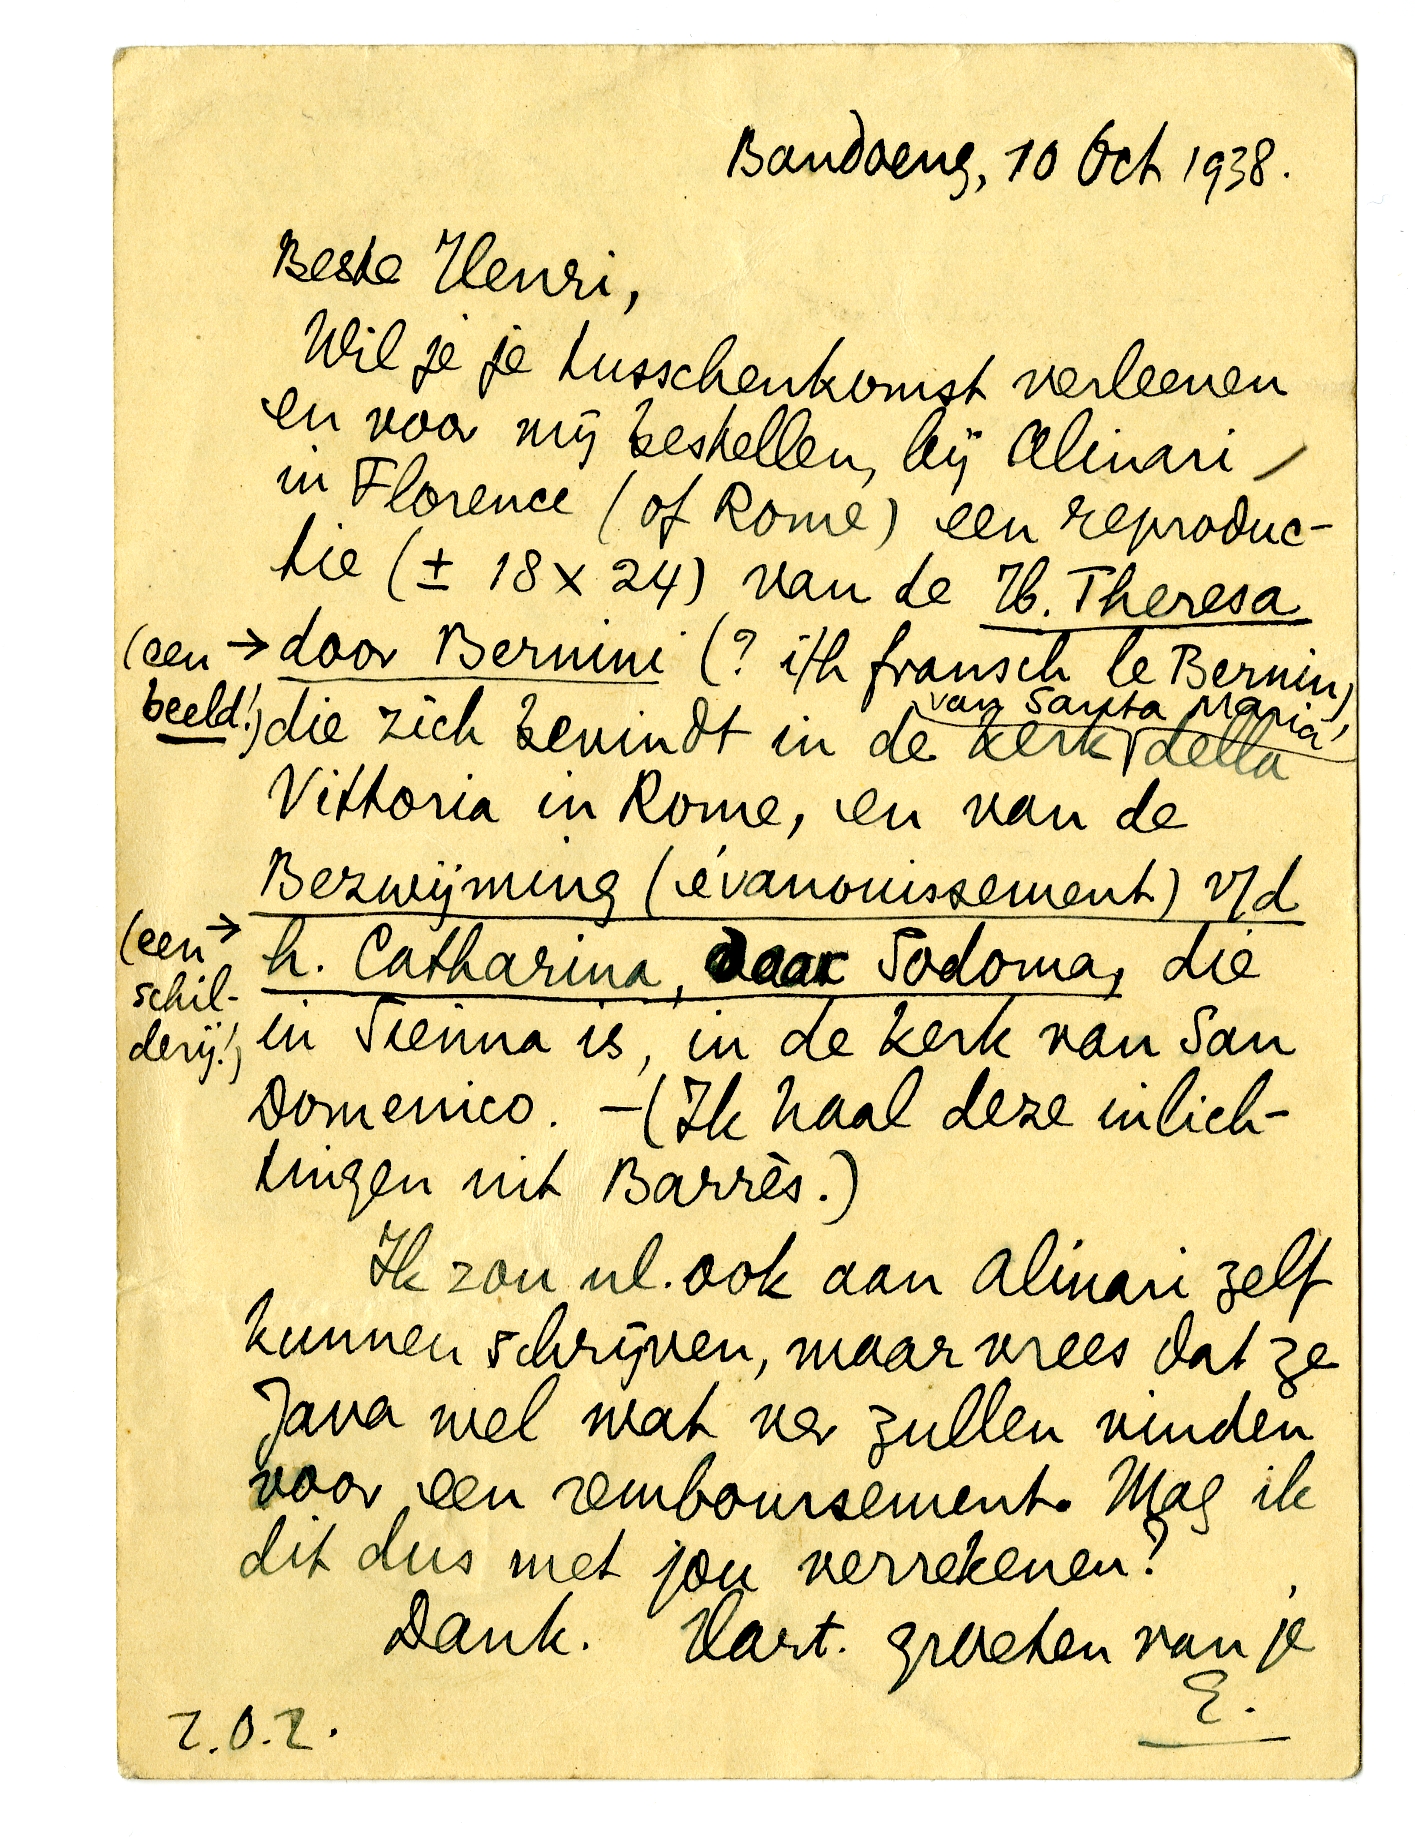 Bandoeng, 10 Oct 1938.
Beste Henri,
Wil je je tusschenkomst verleenen
en voor mij bestellen, bij Alinari
in Florence (of Rome) een reproduc-
tie (± 18 x 24) van de H. Theresa
(een → door Bernini (? i/h fransch le Bernin)
van Santa Maria
beeld!) die zich bevindt in de kerk della
Vittoria in Rome, en van de
Bezwijming (évanouissement) v/d
(een → h. Catharina, door Sodoma, die
schil-
derij!) in Sienna is, in de kerk van San
Domenico. — (Ik haal deze inlich-
tingen uit Barrès.)
Ik zou nl. ook aan Alinari zelf
kunnen schrijven, maar vrees dat ze
Java wel wat ver zullen vinden
voor een remboursement. Mag ik
dit dus met jou verrekenen?
Dank. Hart. groeten van je
E.
Z.O.Z.